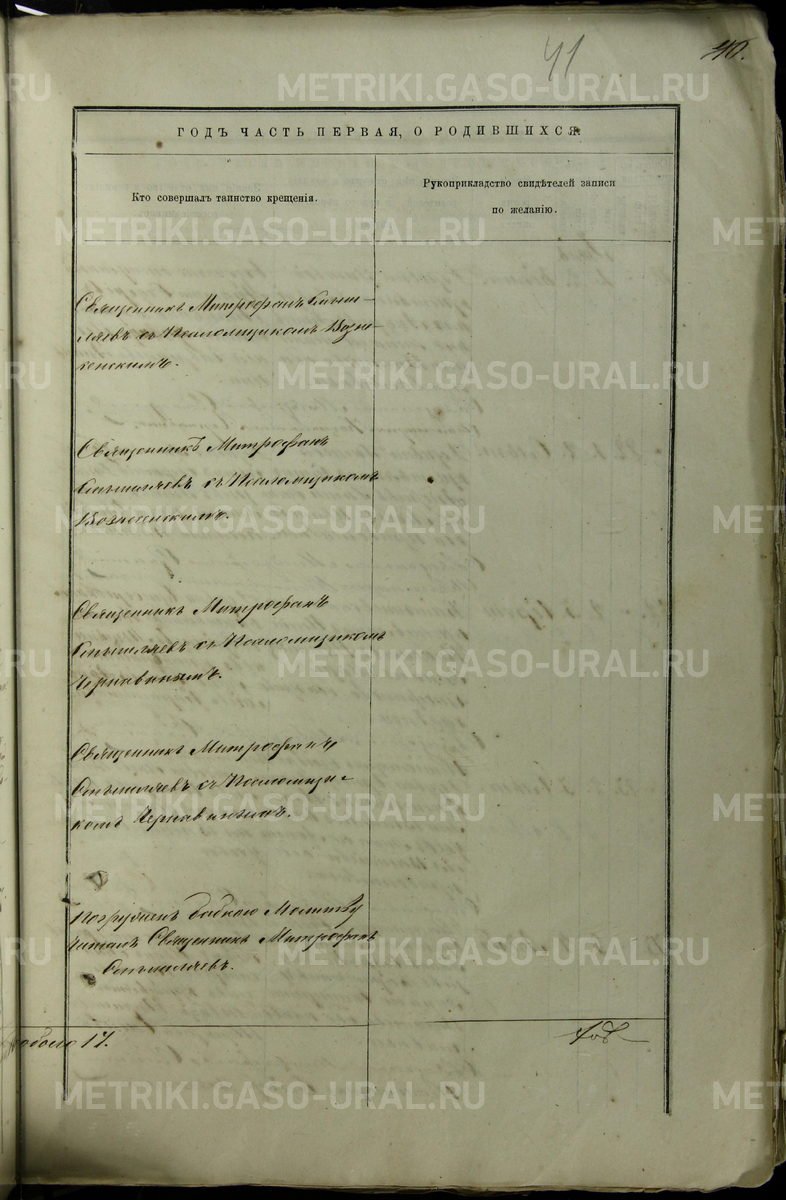 41
40.
ГОДЪ ЧАСТЬ ПЕРВАЯ, О РОДИВШИХСЯ
Кто совершалъ таинство крещенія.
Рукоприкладство свидѣтелей записи
по желанію.
Священникъ Митрофанъ Смыш-
ляевъ съ Псаломщикомъ Возне-
сенскимъ.
Священникъ Митрофанъ
Смышляевъ съ Псаломщикомъ
Вознесенскимъ.
Священникъ Митрофанъ
Смышляевъ съ Псаломщикомъ
Чернавинымъ.
Священникъ Митрофанъ
Смышляевъ съ Псаломщи-
комъ Чернавинымъ.
Погруженъ бабкою Молитву
читалъ Священникъ Митрофанъ
Смышляевъ.
17.
METRIKI.GASO-URAL.RU